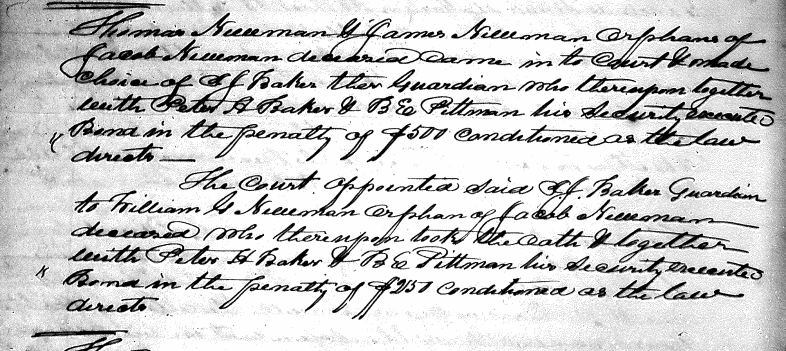 Thomas Newman & James Newman Orphans of
Jacob Newman deceased Came in to Court & made
Choice of S J Baker ther Guardian who thereupon together
with Peter H Baker & B E Pittman his Security executed
Bond in the penalty of $500 Conditioned as the law
directs —
The Court appointed said S J. Baker Guardian
to William G Newman Orphan of Jacob Newman
deceased who thereupon took the oath & together
with Peter H Baker & B E Pittman his Security executed
Bond in the penalty of $250 Conditioned as the law
directs